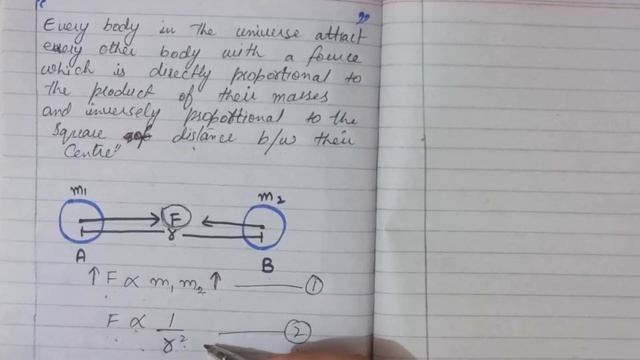 " "
Every body in the universe attract
every other body with a fource
which is directly proportional to
the product of their masses
and inversely proportional to the
Square of distance b/w their
Centre"
m₁ m₂
F
r
A B
↑ F ∝ m₁ m₂ ↑ ——— ①
F ∝ 1/r² ——— ②